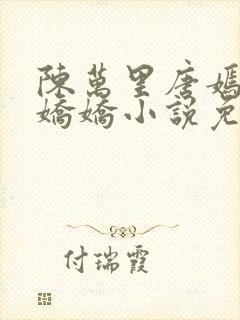 陳萬里唐嫣
嬌嬌小說免
付瑞霞